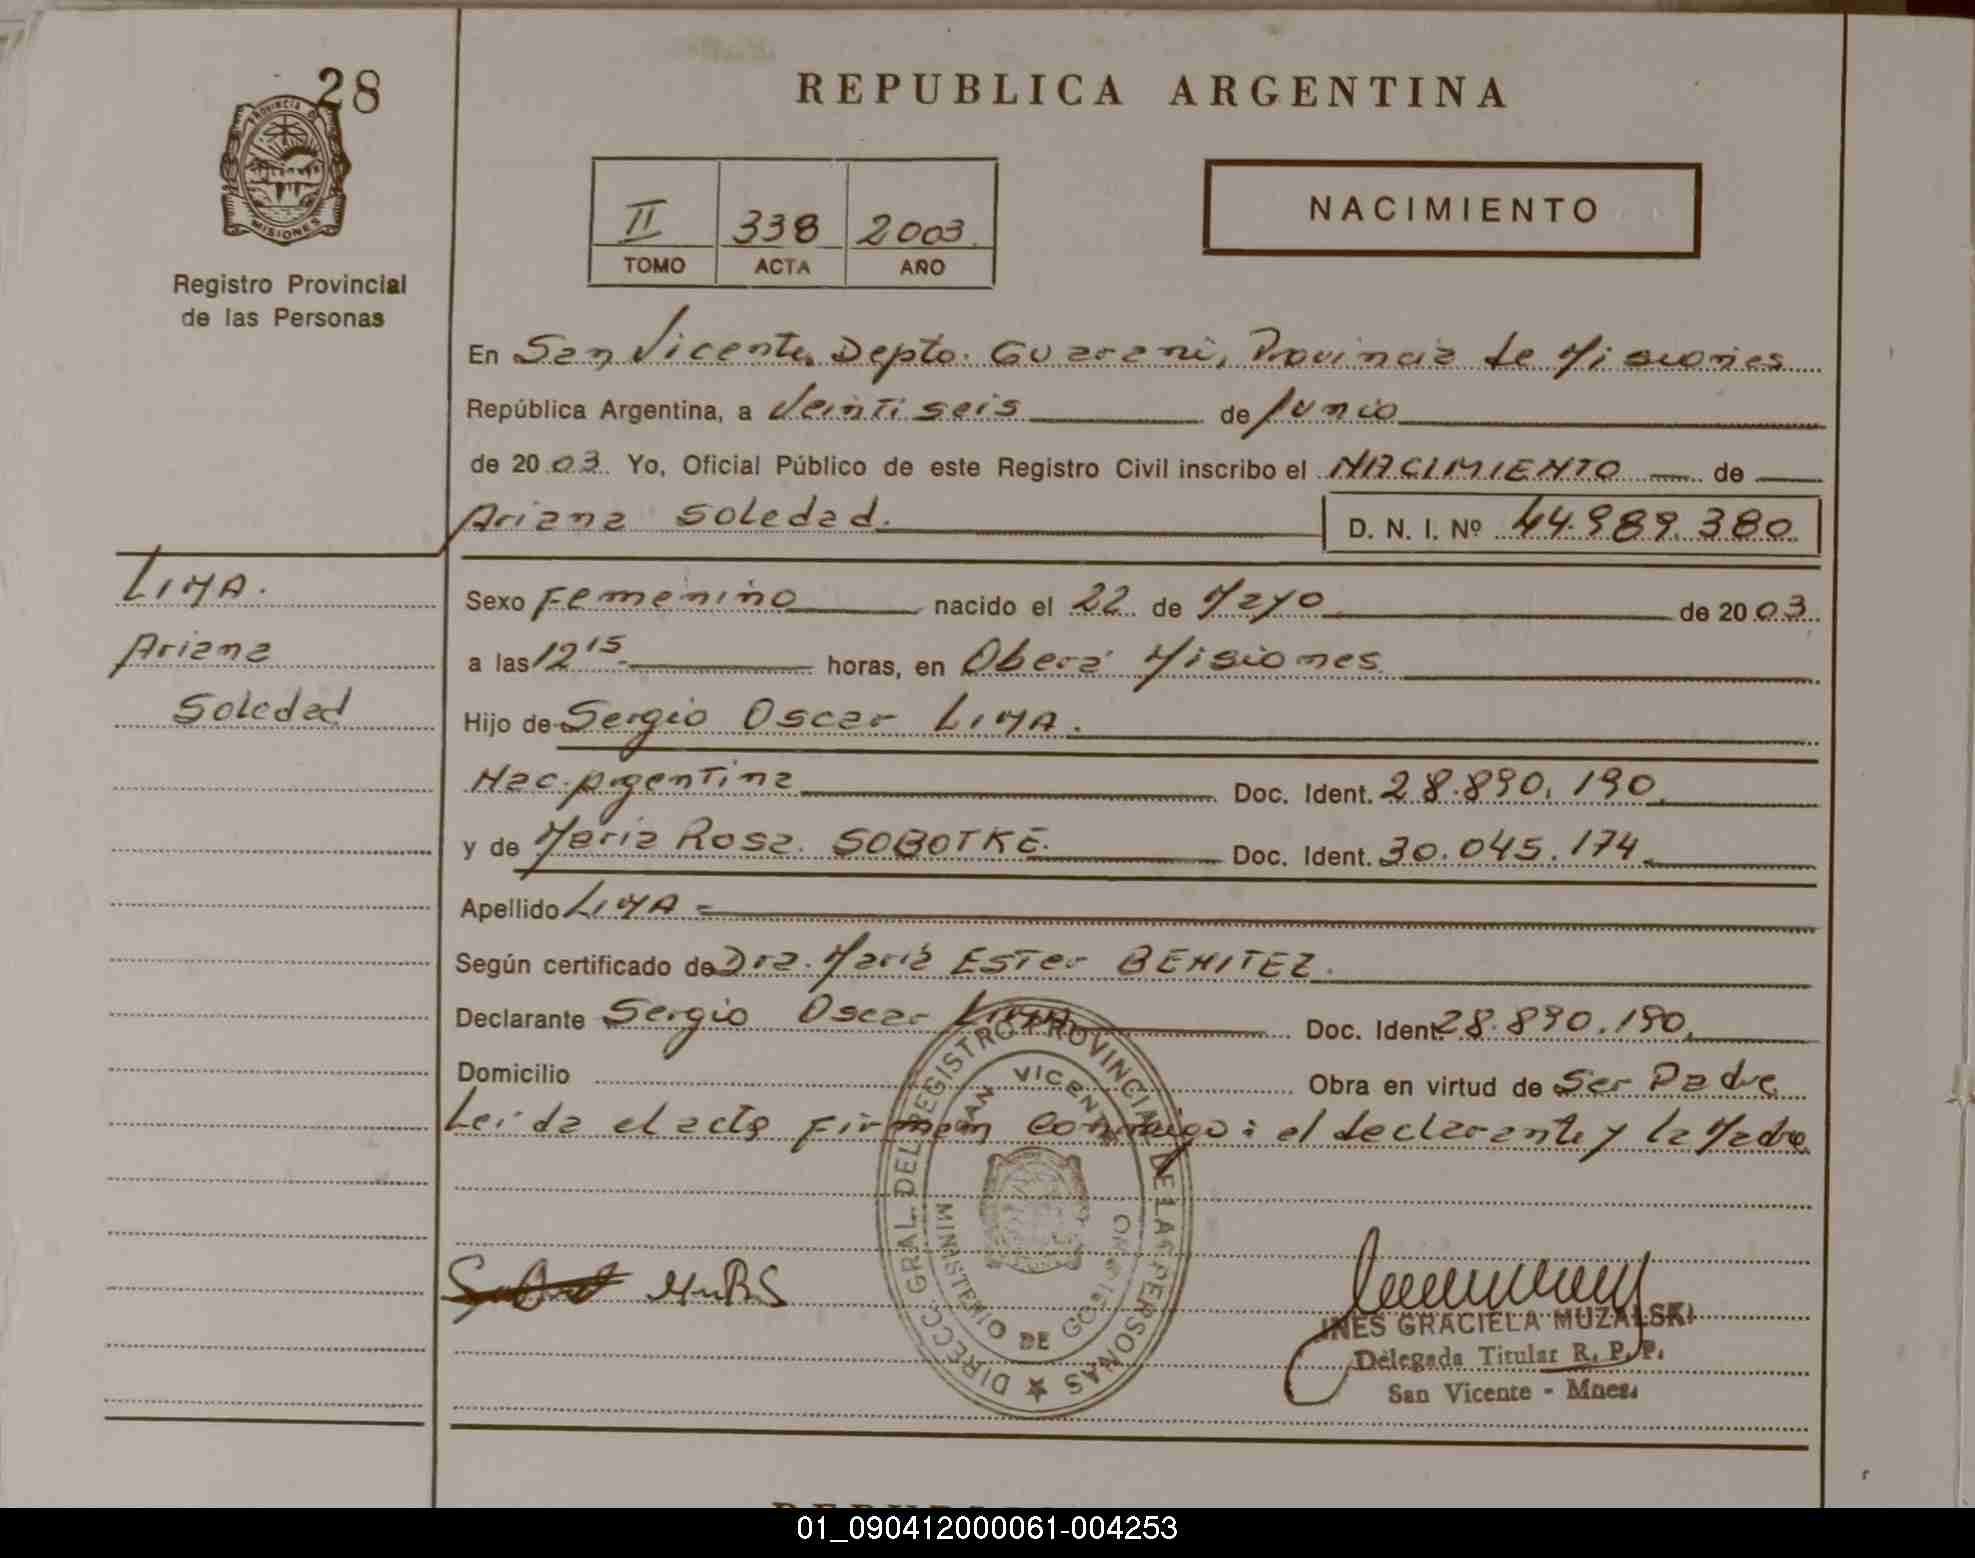 28
REPUBLICA ARGENTINA
PROVINCIA DE
MISIONES
Registro Provincial
de las Personas
II 338 2003
TOMO ACTA AÑO
NACIMIENTO
En San Vicente Depto. Guarani, Provincia de Misiones
República Argentina, a Veintiseis de Junio
de 2003. Yo, Oficial Público de este Registro Civil inscribo el NACIMIENTO de
Ariana Soledad. D. N. I. Nº 44.989.380
LIMA.
Ariana
Soledad
Sexo Femenino nacido el 22 de Mayo de 2003.
a las 12 15 horas, en Oberá Misiones
Hijo de Sergio Oscar LIMA.
Nac. Argentina Doc. Ident. 28.890.190
y de Maria Rosa SOBOTKE. Doc. Ident. 30.045.174
Apellido LIMA =
Según certificado de Dra. María Ester BENITEZ.
Declarante Sergio Oscar Lima Doc. Ident. 28.890.190
Domicilio Obra en virtud de Ser Padre
Leída el acta firman conmigo: el declarante y la Madre
DIRECC. GRAL. DEL REGISTRO PROVINCIAL DE LAS PERSONAS
SAN VICENTE
MINISTERIO DE GOBIERNO
INES GRACIELA MUZALSKI
Delegada Titular R. P. P.
San Vicente - Mnes.
01_090412000061-004253